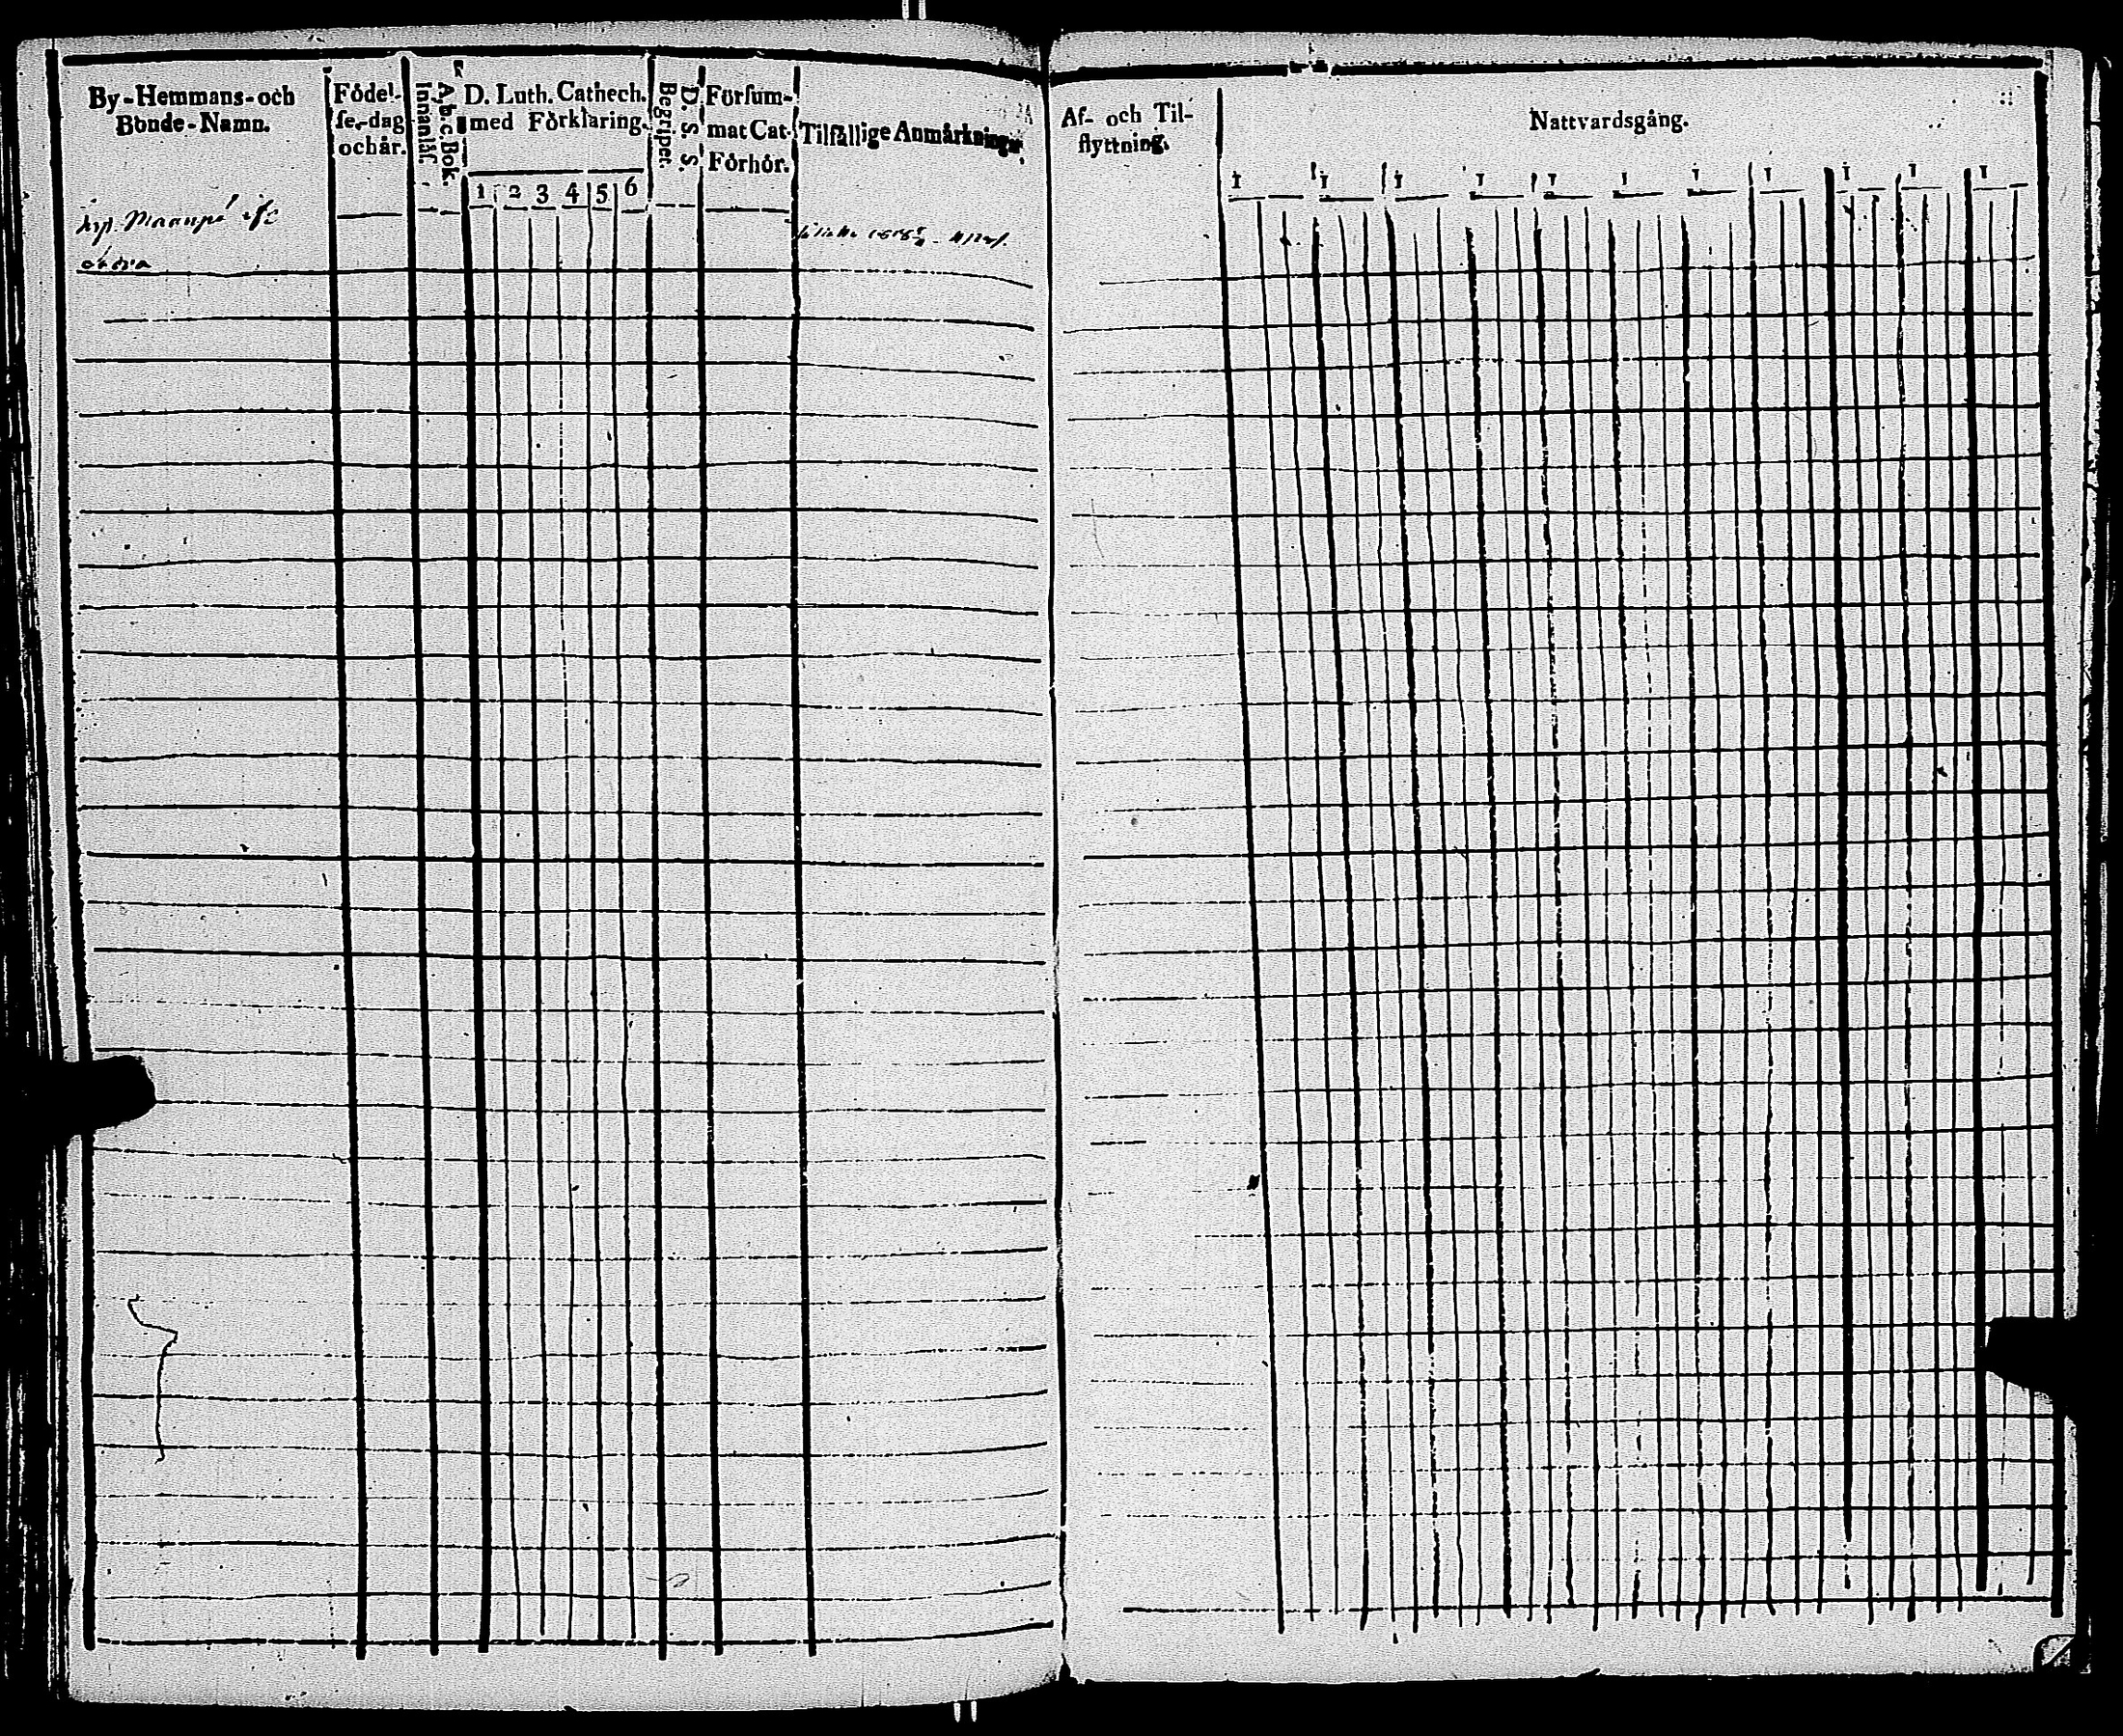 By-Hemmans- och
Bonde-Namn.
Födel-
se-dag
och år.
Innanläs.
A.b.c. Bok.
D. Luth. Cathech.
med Förklaring.
1 2 3 4 5 6
Begripet.
D. S. S.
Försum-
mat Cat.
Förhör.
Tilfällige Anmärkningar.
Af- och Til-
flyttning.
Nattvardsgång.
1 1 1 1 1 1 1 1 1 1 1